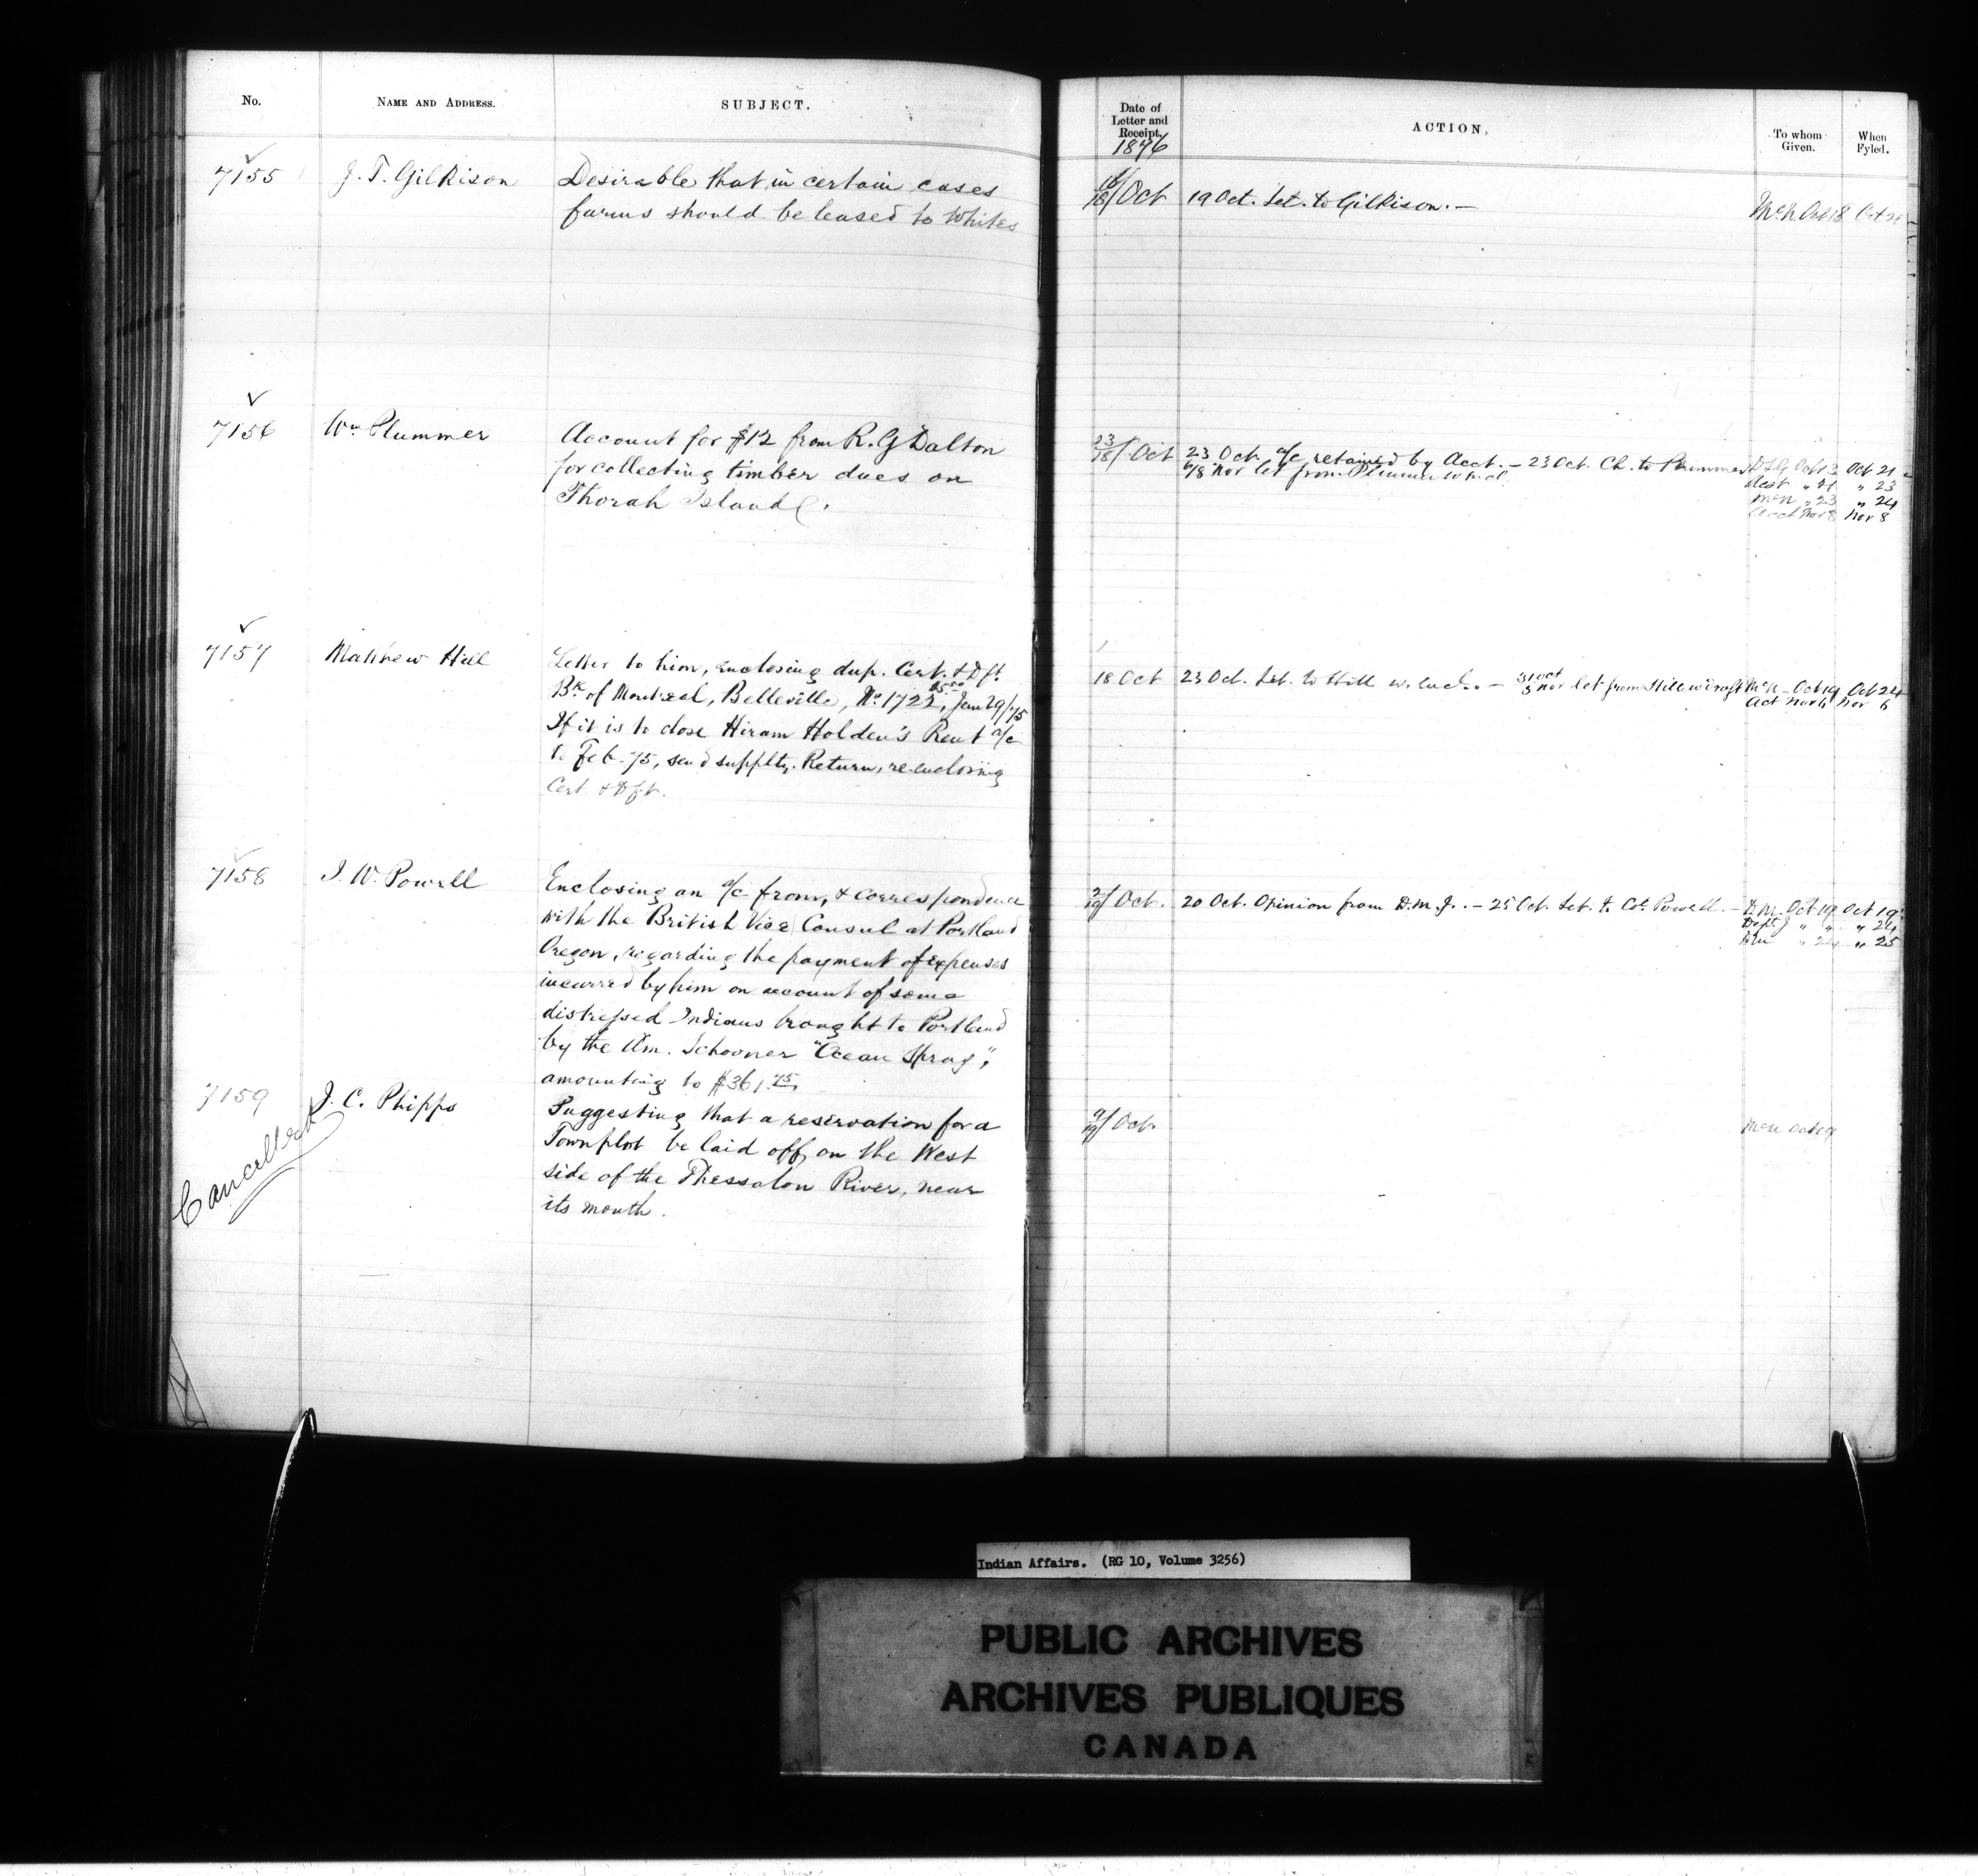 No.
NAME AND ADDRESS.
SUBJECT.
7155
J. T. Gilkison
Desirable that in certain cases
farms should be leased to Whites
7156
Wm Plummer
Account for $12 from R. G Dalton
for collecting timber dues on
Thorah Island.
7157
Matthew Hill
Letter to him, enclosing dup. Cert. & Dft
Bk of Montreal, Belleville, No 1722, Jan 29/75
If it is to close Hiram Holden's Rent a/c
to Feb. 75, send suppltry. Return, re-enclosing
Cert. & Dft.
7158
I. W. Powell
Enclosing an a/c from, & correspondence
with the British Vice Consul at Portland
Oregon, regarding the payment of expenses
incurred by him on account of some
distressed Indians brought to Portland
by the Am. Schooner "Ocean Spray",
amounting to $361.75.
7159
Cancelled
J. C. Phipps
Suggesting that a reservation for a
Townplot be laid off, on the West
side of the Thessalon River, near
its mouth.
Date of
Letter and
Receipt.
1876
ACTION.
To whom
Given.
When
Fyled.
16/18 Oct
19 Oct. Let. to Gilkison. —
McN Oct 18
Oct 21
/18 Oct
23 Oct. a/c retained by Acct. — 23 Oct. Ch. to Plummer
6/8 Nov let from Plummer
Oct 21
" 21 " 23
McN " 23 " 24
Acct Nov 8 Nov 8
18 Oct
23 Oct. Let. to Hill w. encl. — 31 Oct/3 Nov let from Hill w draft
McN Oct 19 Oct 24
Act Nov 6 Nov 6
/19 Oct.
20 Oct. Opinion from D.M.J. — 25 Oct. Let. to Col. Powell. —
D.M. Oct 19 Oct 19
Dept J " " " 24
" 24 " 25
9/19 Oct.
McN Oct 19
Indian Affairs. (RG 10, Volume 3256)
PUBLIC ARCHIVES
ARCHIVES PUBLIQUES
CANADA